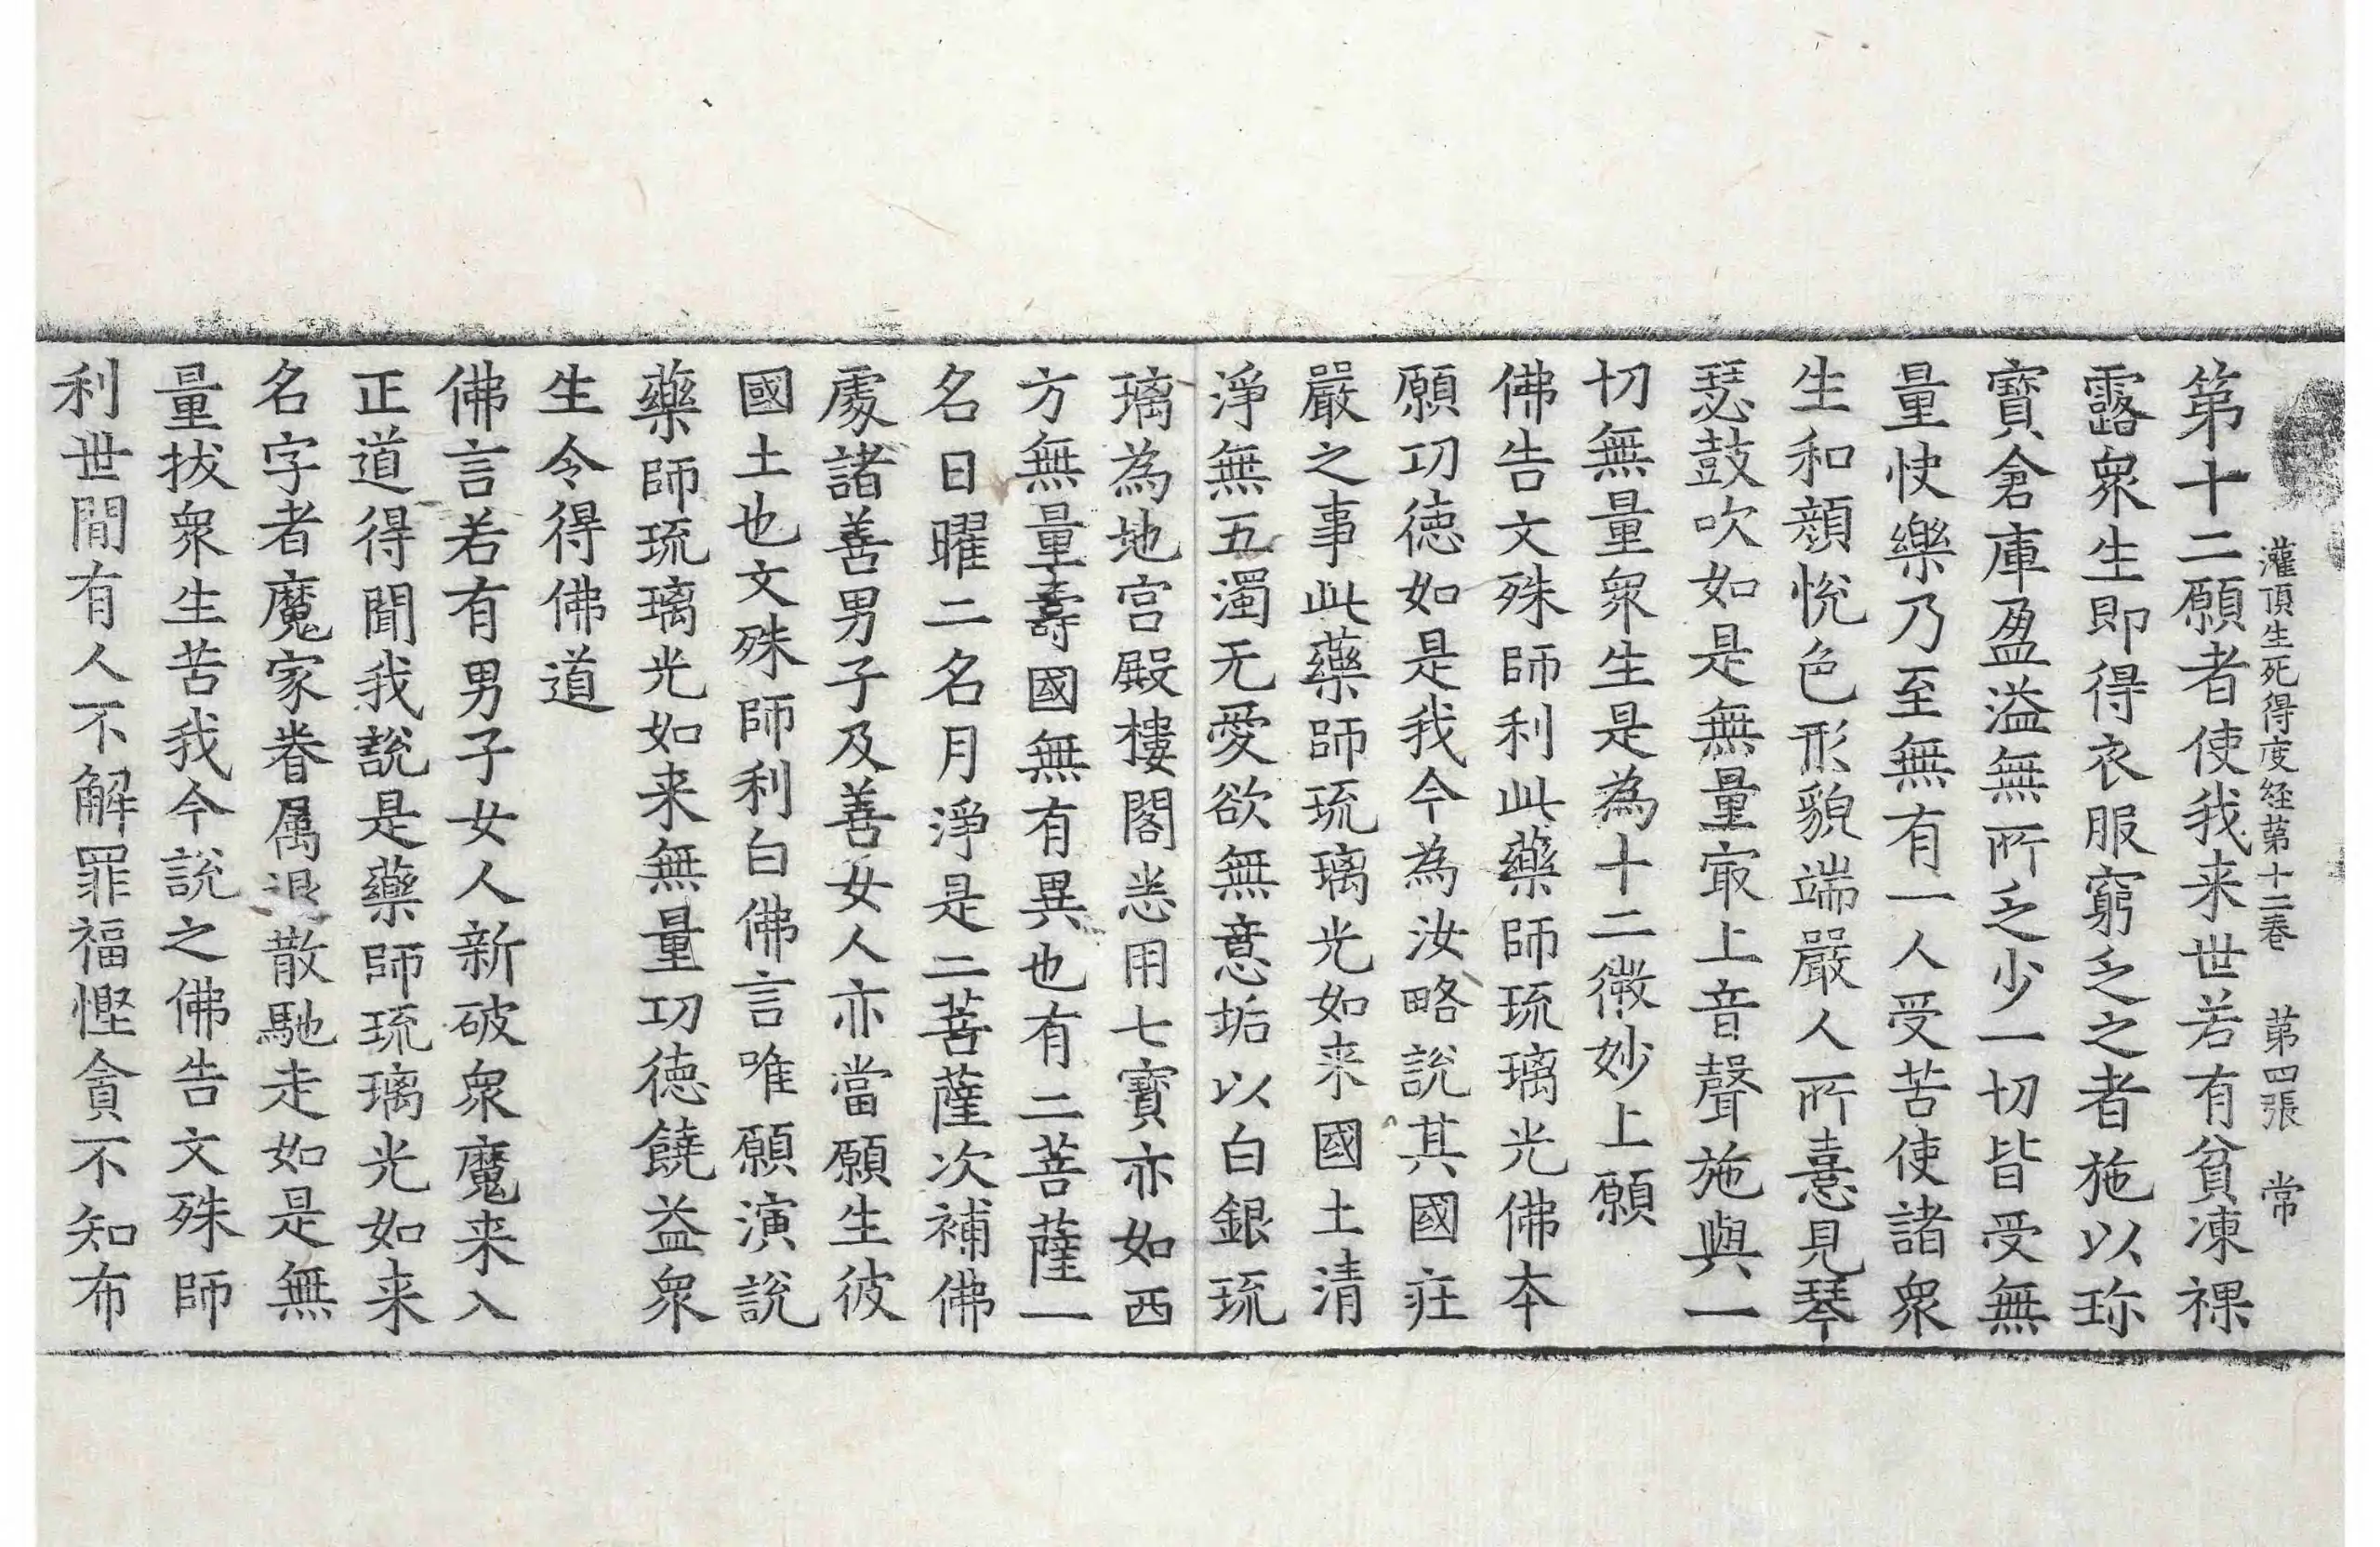 灌頂生死得度経第十二卷　第四張　常
第十二願者使我来世若有貧凍裸
露衆生即得衣服窮乏之者施以珎
寳倉庫盈溢無所乏少一切皆受無
量快樂乃至無有一人受苦使諸衆
生和顔悅色形貌端嚴人所憙見琴
瑟鼓吹如是無量寂上音聲施與一
切無量衆生是為十二微妙上願
佛告文殊師利此藥師琉璃光佛本
願功徳如是我今為汝略說其國莊
嚴之事此藥師琉璃光如来國土清
淨無五濁无愛欲無意垢以白銀琉
璃為地宫殿樓閣悉用七寳亦如西
方無量壽國無有異也有二菩薩一
名日曜二名月淨是二菩薩次補佛
處諸善男子及善女人亦當願生彼
國土也文殊師利白佛言唯願演說
藥師琉璃光如来無量功徳饒益衆
生令得佛道
佛言若有男子女人新破衆魔来入
正道得聞我說是藥師琉璃光如来
名字者魔家眷属退散馳走如是無
量拔衆生苦我今說之佛告文殊師
利世間有人不解罪福慳貪不知布